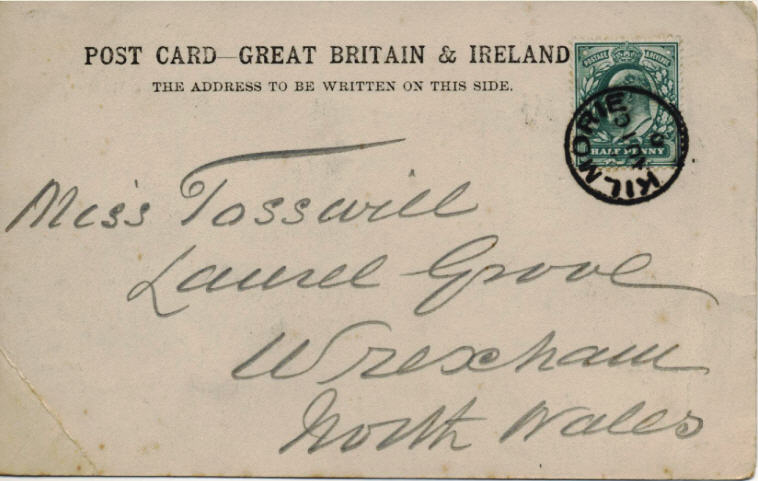 POST CARD—GREAT BRITAIN & IRELAND
THE ADDRESS TO BE WRITTEN ON THIS SIDE.
POSTAGE REVENUE
HALF PENNY
KILMORIE
Miss Tosswill
Laurel Grove
Wrexham
North Wales